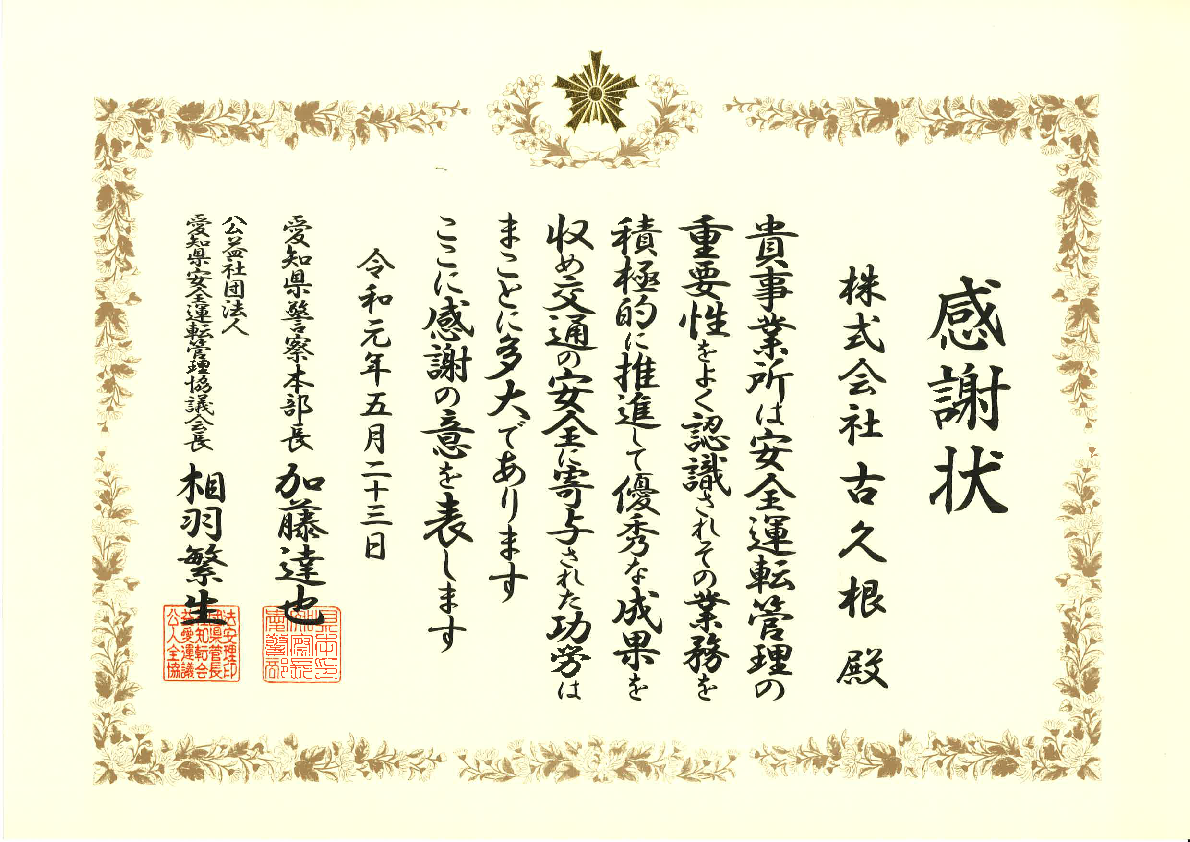 感謝状
株式会社古久根殿
貴事業所は安全運転管理の
重要性をよく認識されその業務を
積極的に推進して優秀な成果を
収め交通の安全に寄与された功労は
まことに多大であります
ここに感謝の意を表します
令和元年五月二十三日
愛知県警察本部長 加藤達也
公益社団法人
愛知県安全運転管理協議会長 相羽繁生